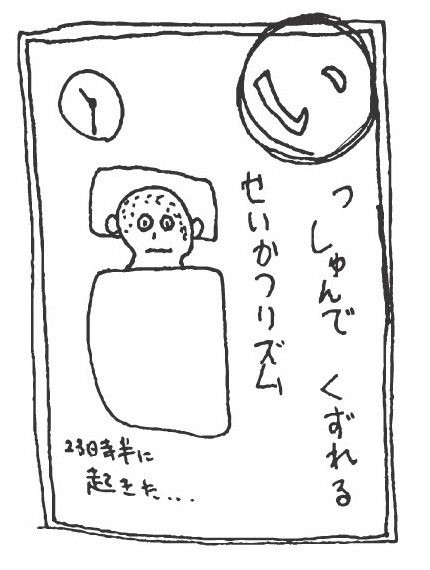 い
っしゅんで くずれる
せいかつリズム
23時半に
起きた...